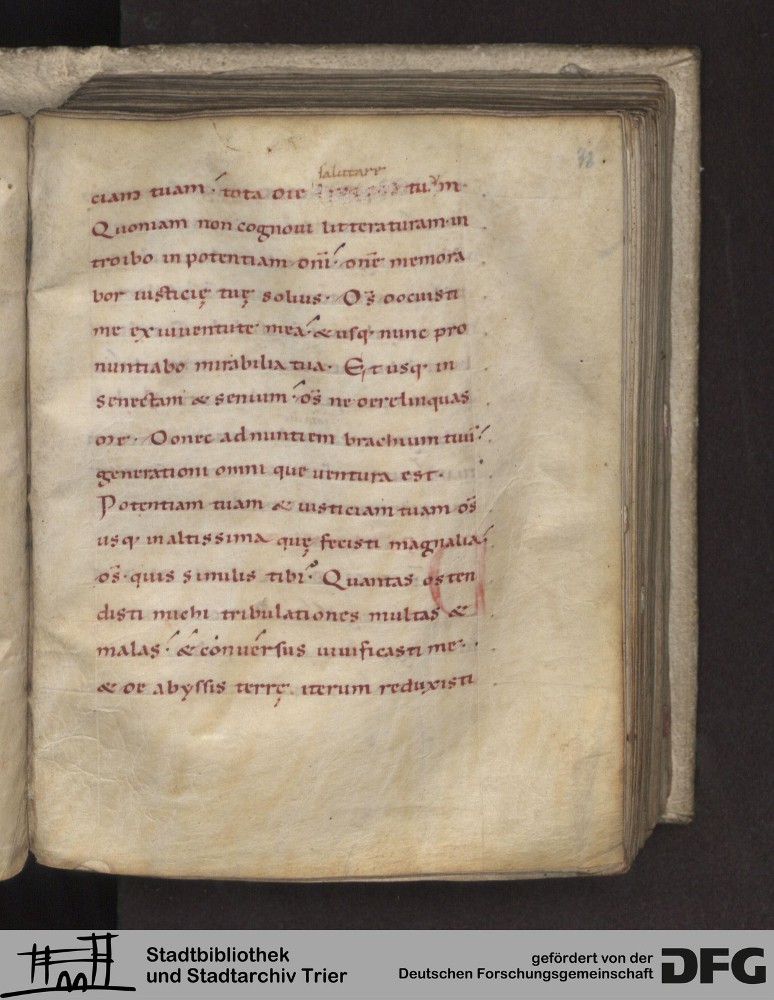 32
salutare
ciam tuam. tota die tuum.
Quoniam non cognoui litteraturam in
troibo in potentiam dñi. dñe memora
bor iusticię tuę solius. Ds̄ docuisti
me ex iuuentute mea. & usq. nunc pro
nuntiabo mirabilia tua. Et usq. in
senectam & senium. ds̄ ne derelinquas
me. Donec adnuntiem brachium tuū.
generationi omni que uentura est.
Potentiam tuam & iusticiam tuam ds̄
usq. in altissima quę fecisti magnalia.
ds̄. quis similis tibi. Quantas osten
disti michi tribulationes multas &
malas. & conuersus uiuificasti me.
& de abyssis terrę iterum reduxisti
Stadtbibliothek
und Stadtarchiv Trier
gefördert von der
Deutschen Forschungsgemeinschaft
DFG